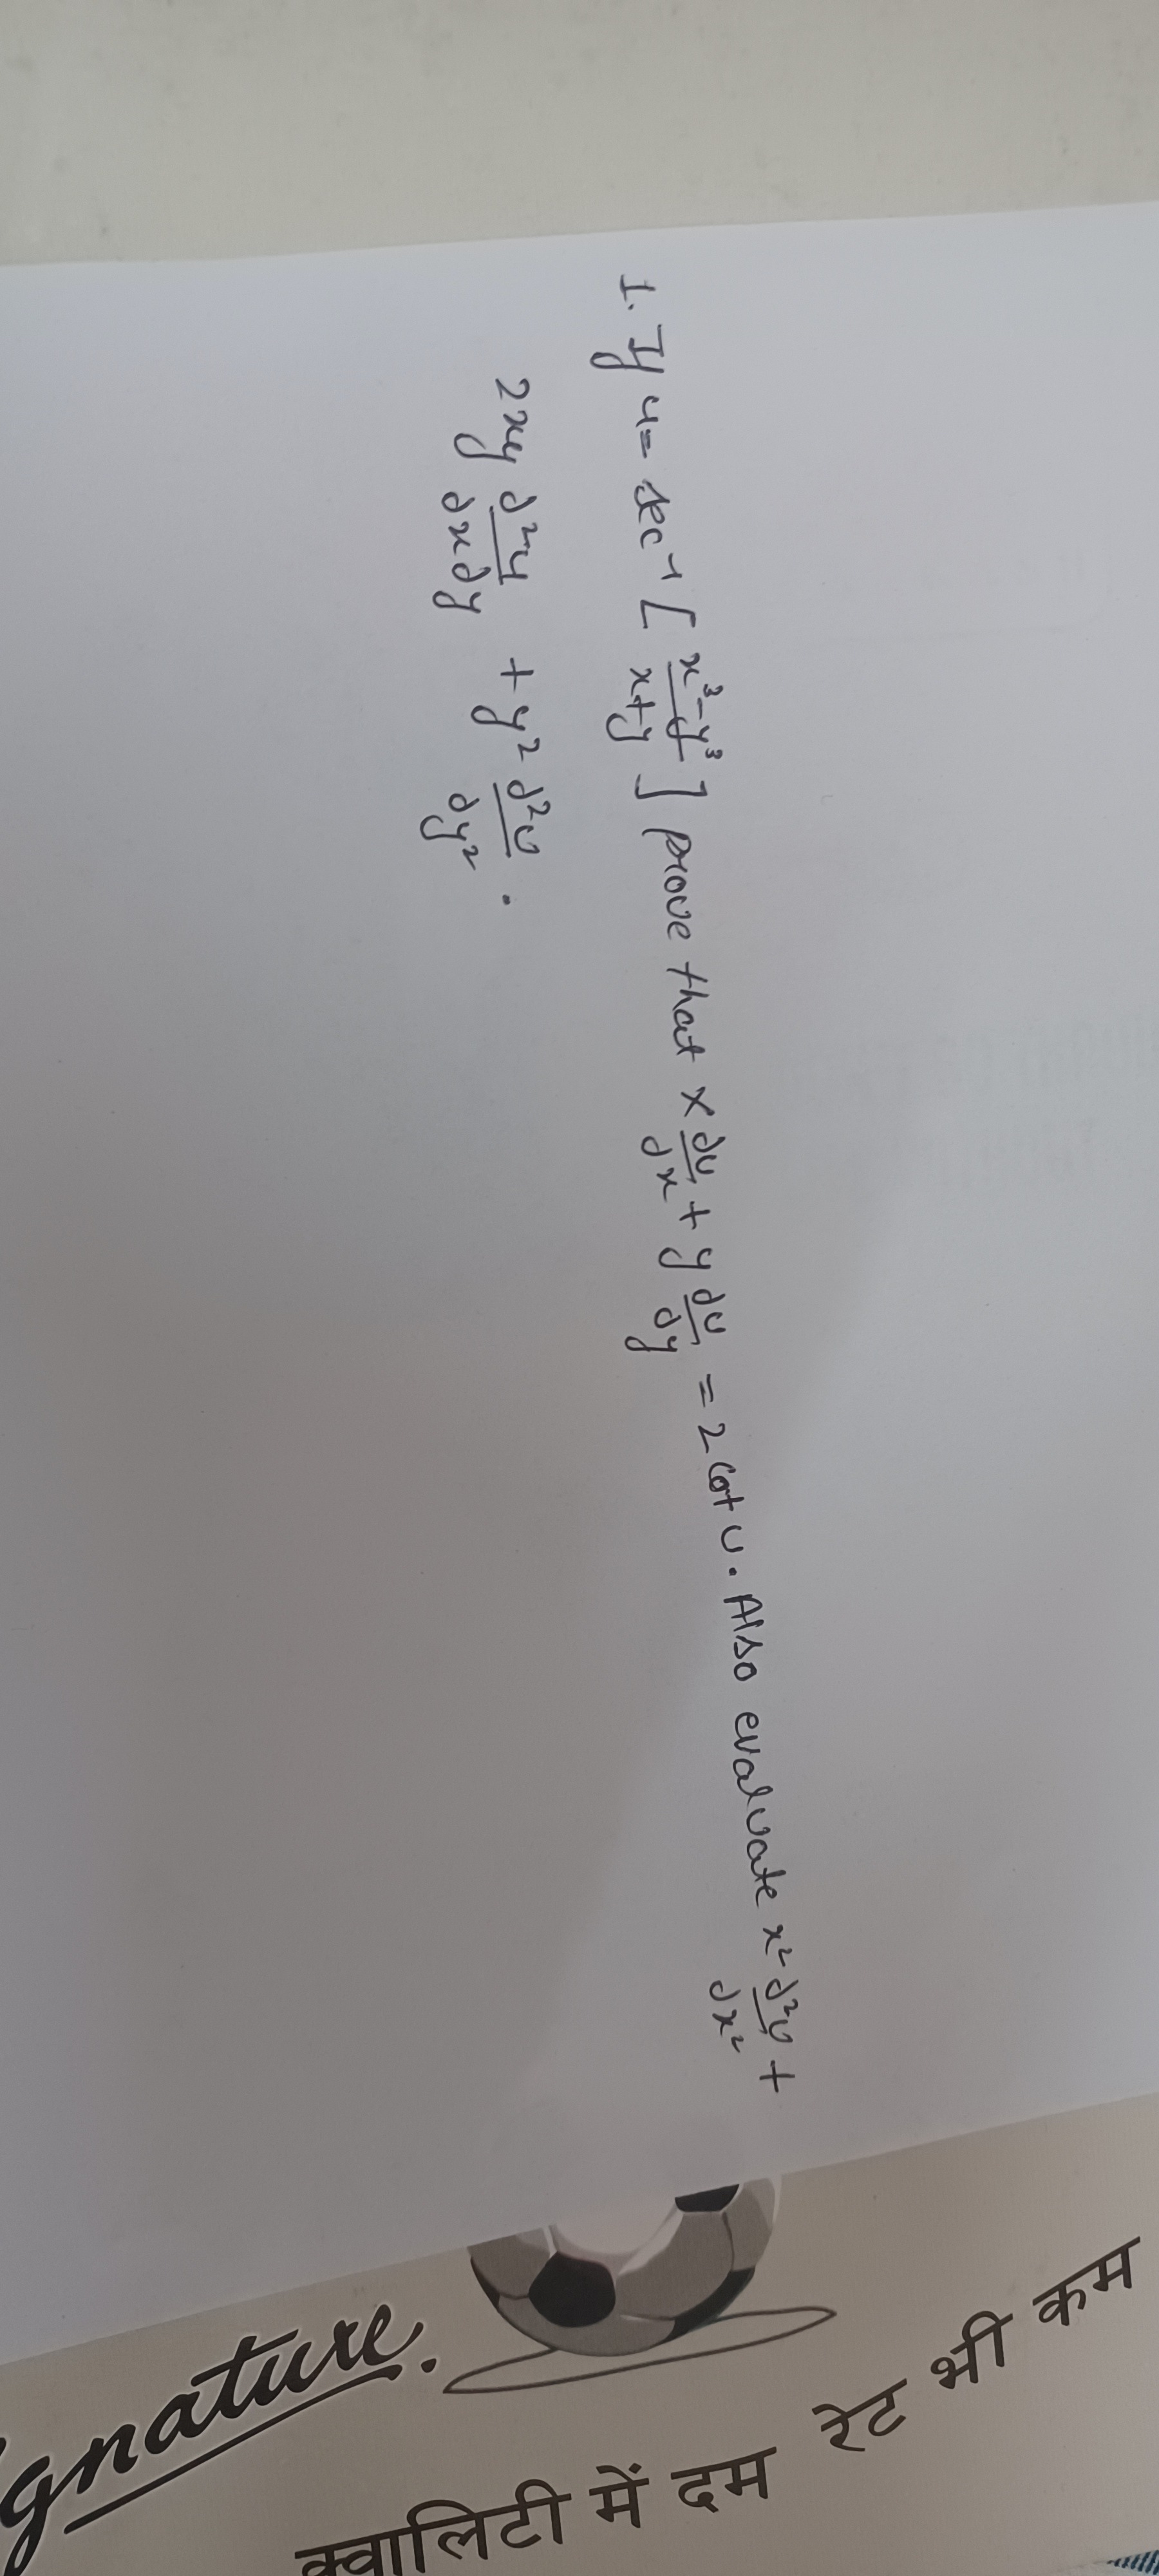 1. If u = sec⁻¹ [ x³-y³ / x+y ] prove that x ∂u/∂x + y ∂u/∂y = 2 cot u. Also evaluate x² ∂²u/∂x² +
2xy ∂²u/∂x∂y + y² ∂²u/∂y² .
gnature.
क्वालिटी में दम रेट भी कम